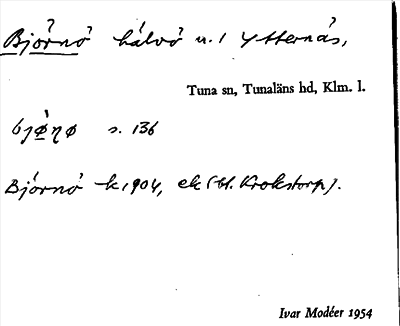 Björnö halvö u. / Ytternäs,
Tuna sn, Tunaläns hd, Klm. l.
s. 136
Björnö k 1904, ek (bl. Krokstorp).
Ivar Modéer 1954